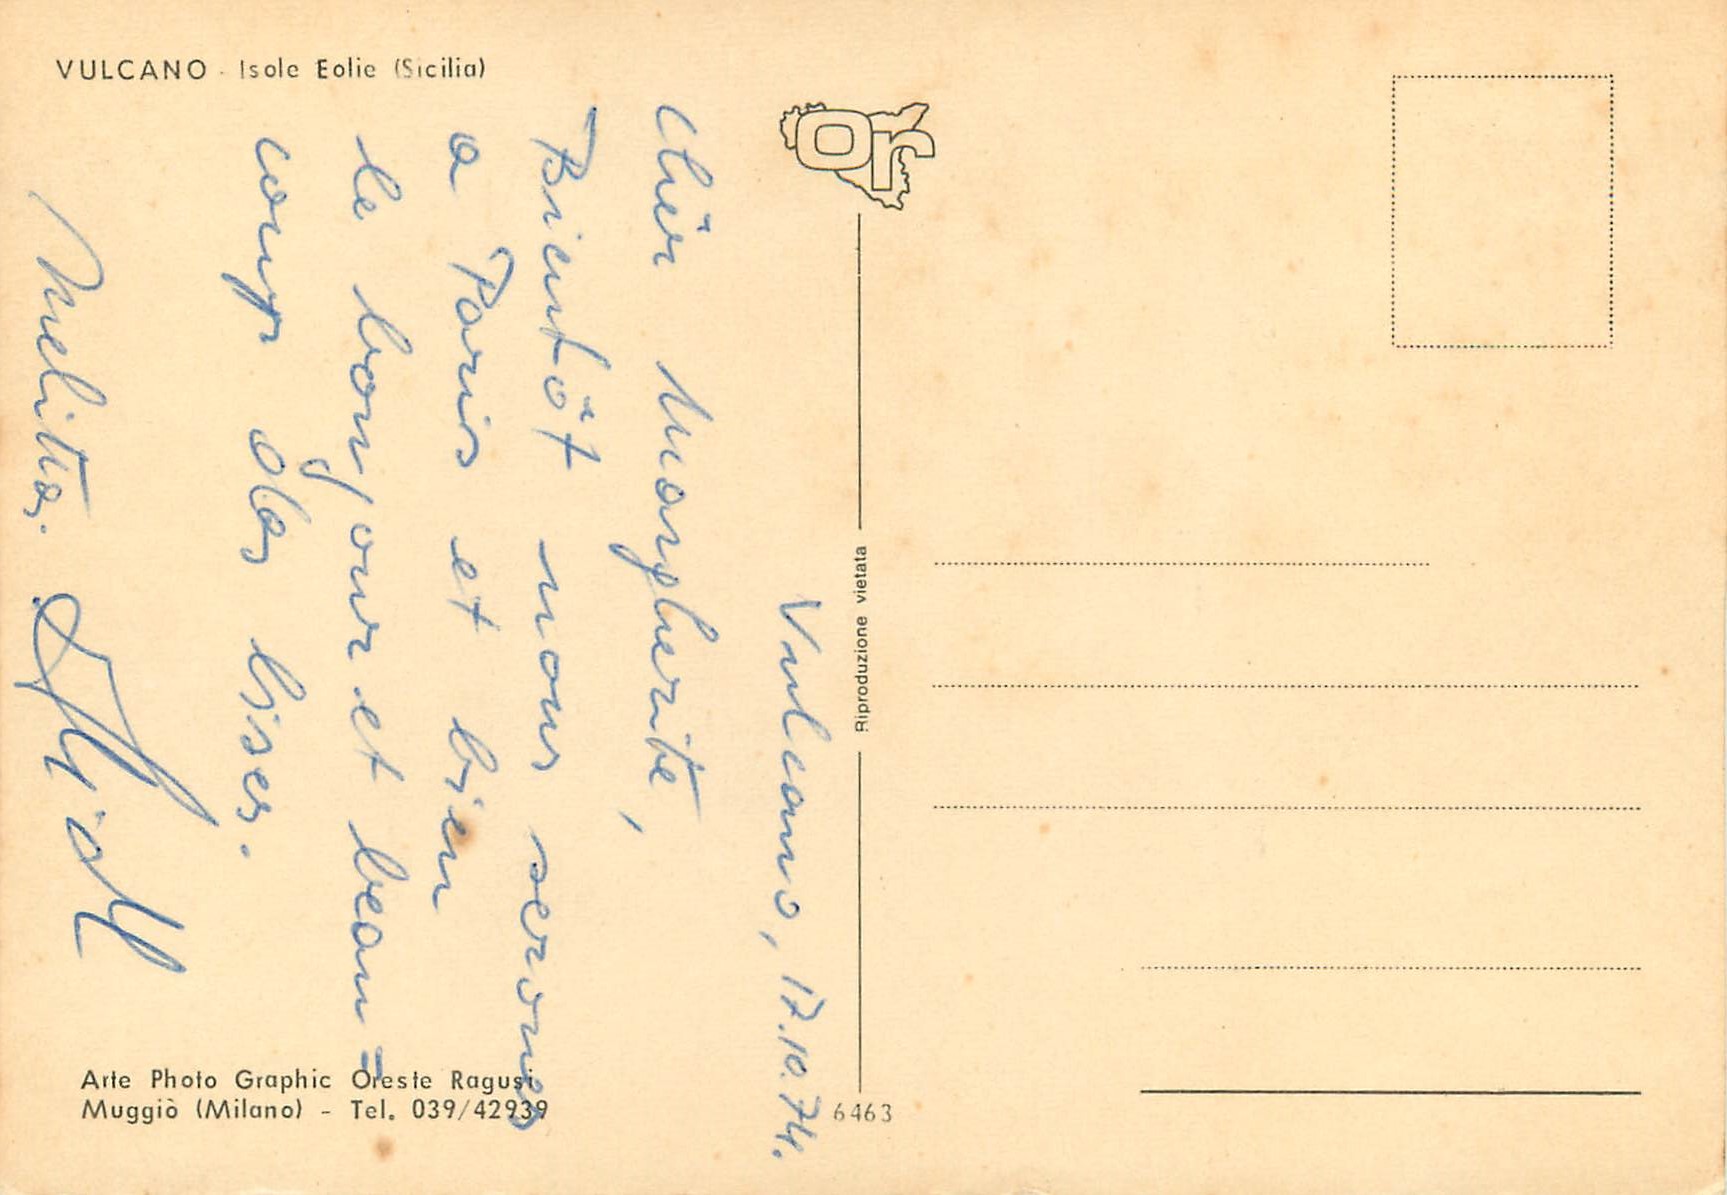 VULCANO - Isole Eolie (Sicilia)
or
Vulcano, 17.10.74.
Chèr Margherite,
Bientôt nous serones
a Paris et bien
le bonjour et beau=
coup des bises.
Melitta.
Riproduzione vietata
Arte Photo Graphic Oreste Ragusi
Muggiò (Milano) - Tel. 039/42939
6463